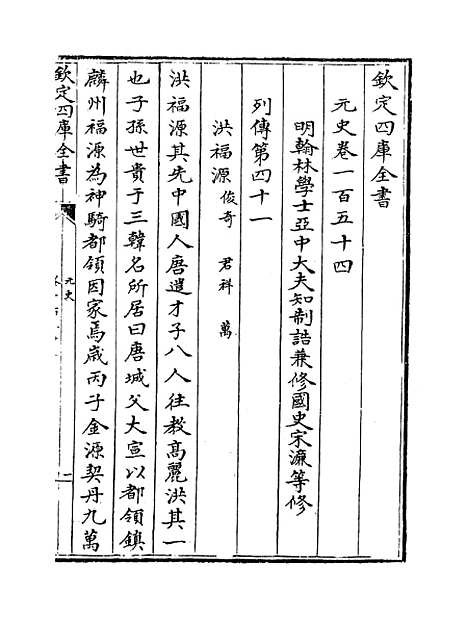 欽定四庫全書
元史卷一百五十四
明翰林學士亞中大夫知制誥兼修國史宋濂等修
列傳第四十一
洪福源 俊奇 君祥 萬
洪福源其先中國人唐遣才子八人徃教髙麗洪其一
也子孫世貴于三韓名所居曰唐城父大宣以都領鎮
麟州福源為神騎都領因家焉歲丙子金源契丹九萬
欽定四庫全書
元史